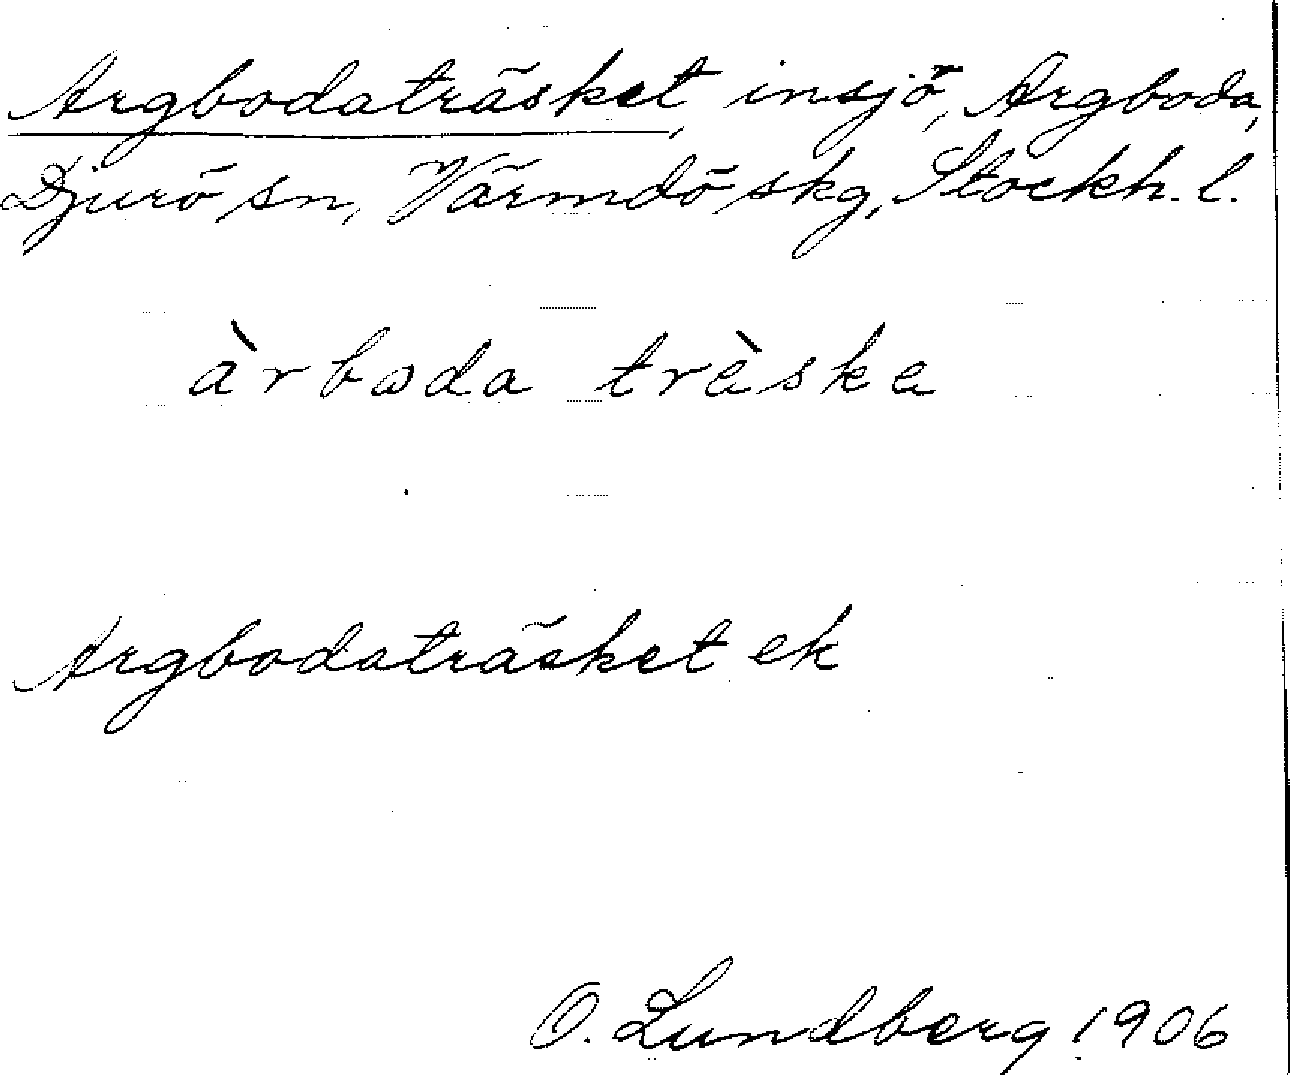 Argbodaträsket, insjö, Argboda,
Djurö sn, Värmdö skg, Stockh. l.
àrboda trèske
Argbodaträsket ek
O. Lundberg 1906